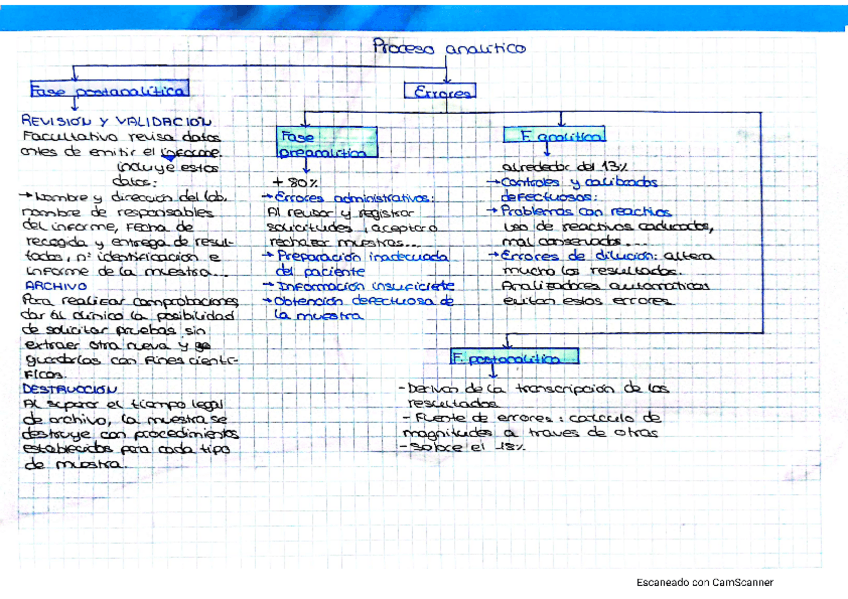 Proceso analítico
Fase postanalítica
REVISIÓN Y VALIDACIÓN
Facultativo revisa datos
antes de emitir el informe.
incluye estos
datos:
→ Nombre y dirección del lab,
nombre de responsables
del informe, fecha de
recogida y entrega de resul-
tados, nº identificación e
informe de la muestra...
ARCHIVO
Para realizar comprobaciones,
dar al clínico la posibilidad
de solicitar pruebas sin
extraer otra nueva y
guardarlas con fines cientí-
ficos.
DESTRUCCIÓN
Al superar el tiempo legal
de archivo, la muestra se
destruye con procedimientos
establecidos para cada tipo
de muestra.
Errores
Fase
preanalítica
+ 80%
→ Errores administrativos:
Al revisar y registrar
solicitudes, aceptar o
rechazar muestras...
→ Preparación inadecuada
del paciente
→ Información insuficiente
→ Obtención defectuosa de
la muestra
F. analítica
alrededor del 13%
→ Controles y calibrados
defectuosos:
→ Problemas con reactivos
Uso de reactivos caducados,
mal conservados...
→ Errores de dilución: altera
mucho los resultados.
Analizadores automáticos
evitan estos errores
F. postanalítica
- Derivan de la transcripción de los
resultados
- Fuente de errores: cálculo de
magnitudes a traves de otras
- Sobre el 15%.
Escaneado con CamScanner